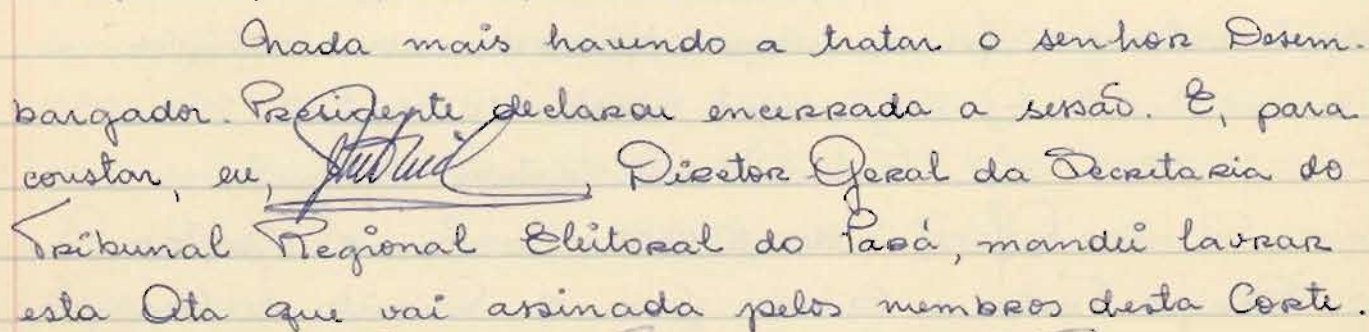 Nada mais havendo a tratar o senhor Desem-
bargador. Presidente declarou encerrada a sessão. E, para
constar, eu, , Diretor Geral da Secretaria do
Tribunal Regional Eleitoral do Pará, mandei lavrar
esta Ata que vai assinada pelos membros desta Corte.